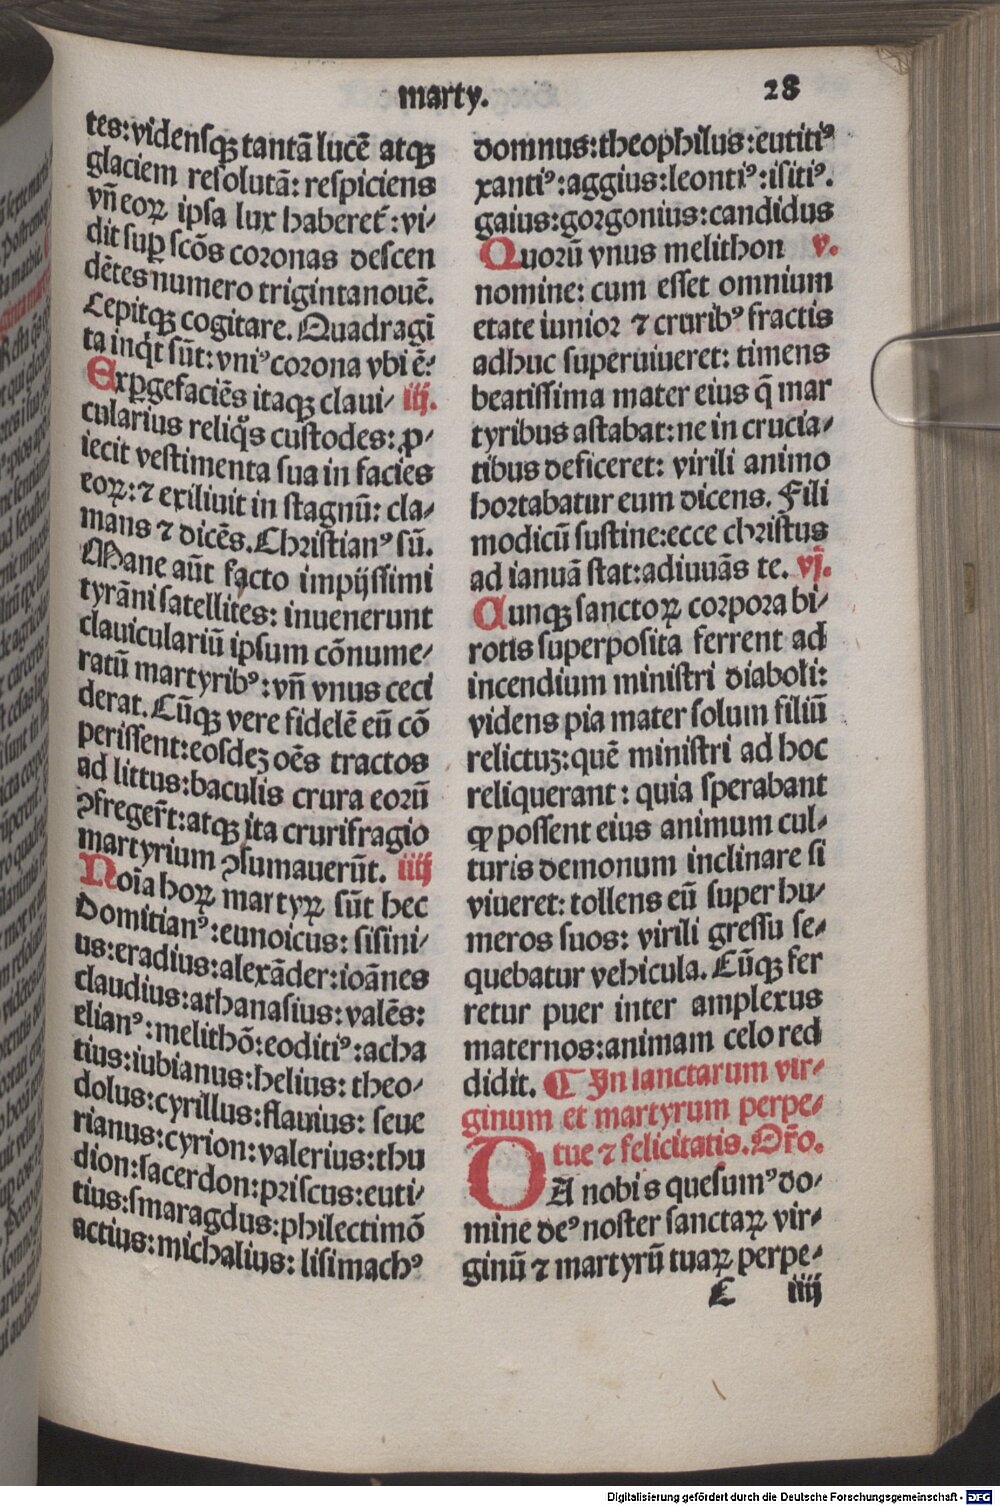 marty. 28
tes:vidensqꝫ tantā lucē atqꝫ
glaciem resolutā: respiciens
vñ eoꝝ ipsa lux haberet̄:vi⸗
dit sup̱ scōs coronas descen
dētes numero trigintanouē.
Cepitqꝫ cogitare. Quadragī
ta inq̇t sūt: vniꝰ corona vbi ē?
Exp̱gefaciēs itaqꝫ claui⸗ iij.
cularius reliq̇s custodes: ꝓ⸗
iecit vestimenta sua in facies
eoꝝ: ⁊ exiliuit in stagnū: cla⸗
mans ⁊ dicēs. Christianꝰ sū.
Mane aūt facto impijssimi
tyrāni satellites: inuenerunt
clauiculariū ipsum cōnume⸗
ratū martyribꝰ: vñ vnus ceci
derat. Cūqꝫ vere fidelē eū cō
perissent: eosdeꝫ oēs tractos
ad littus: baculis crura eorū
ꝯfregeꝛ̄t: atqꝫ ita crurifragio
martyrium ꝯsumauerūt. iiij
Noīa hoꝝ martyꝝ sūt hec
Domitianꝰ: eunoicus: sisini⸗
us: eradius: alexāder: ioānes
claudius: athanasius: valēs:
elianꝰ: melithō: eoditiꝰ: acha
tius: iubianus: helius: theo⸗
dolus: cyrillus: flauius: seue
rianus: cyrion: valerius: thu
dion: sacerdon: priscus: euti⸗
tius: smaragdus: philectimō
actius: michalius: lisimachꝰ
domnus: theophilus: eutitiꝰ
xantiꝰ: aggius: leontiꝰ: isitiꝰ.
gaius: gorgonius: candidus
Quorū vnus melithon v.
nomine: cum esset omnium
etate iunior ⁊ cruribꝰ fractis
adhuc superuiueret: timens
beatissima mater eius q̄ mar
tyribus astabat: ne in crucia⸗
tibus deficeret: virili animo
hortabatur eum dicens. Fili
modicū sustine: ecce christus
ad ianuā stat: adiuuās te. vj.
Cunqꝫ sanctoꝝ corpora bi⸗
rotis superposita ferrent ad
incendium ministri diaboli:
videns pia mater solum filiū
relictuꝫ: quē ministri ad hoc
reliquerant: quia sperabant
ꝙ possent eius animum cul⸗
turis demonum inclinare si
viueret: tollens eū super hu⸗
meros suos: virili gressu se⸗
quebatur vehicula. Cūqꝫ fer
retur puer inter amplexus
maternos: animam celo red
didit. ¶ In sanctarum vir⸗
ginum et martyrum perpe⸗
tue ⁊ felicitatis. Oꝛ̄o.
DA nobis quesumꝰ do⸗
mine deꝰ noster sanctaꝝ vir⸗
ginū ⁊ martyrū tuaꝝ perpe⸗
C iiij
Digitalisierung gefördert durch die Deutsche Forschungsgemeinschaft - DFG